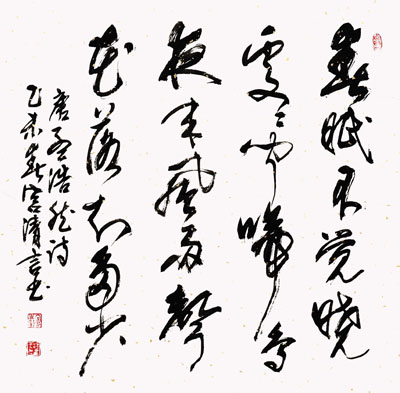 春眠不觉晓
處々闻啼鸟
夜来风雨聲
花落知多少
唐孟浩然诗
乙未春宫清言书